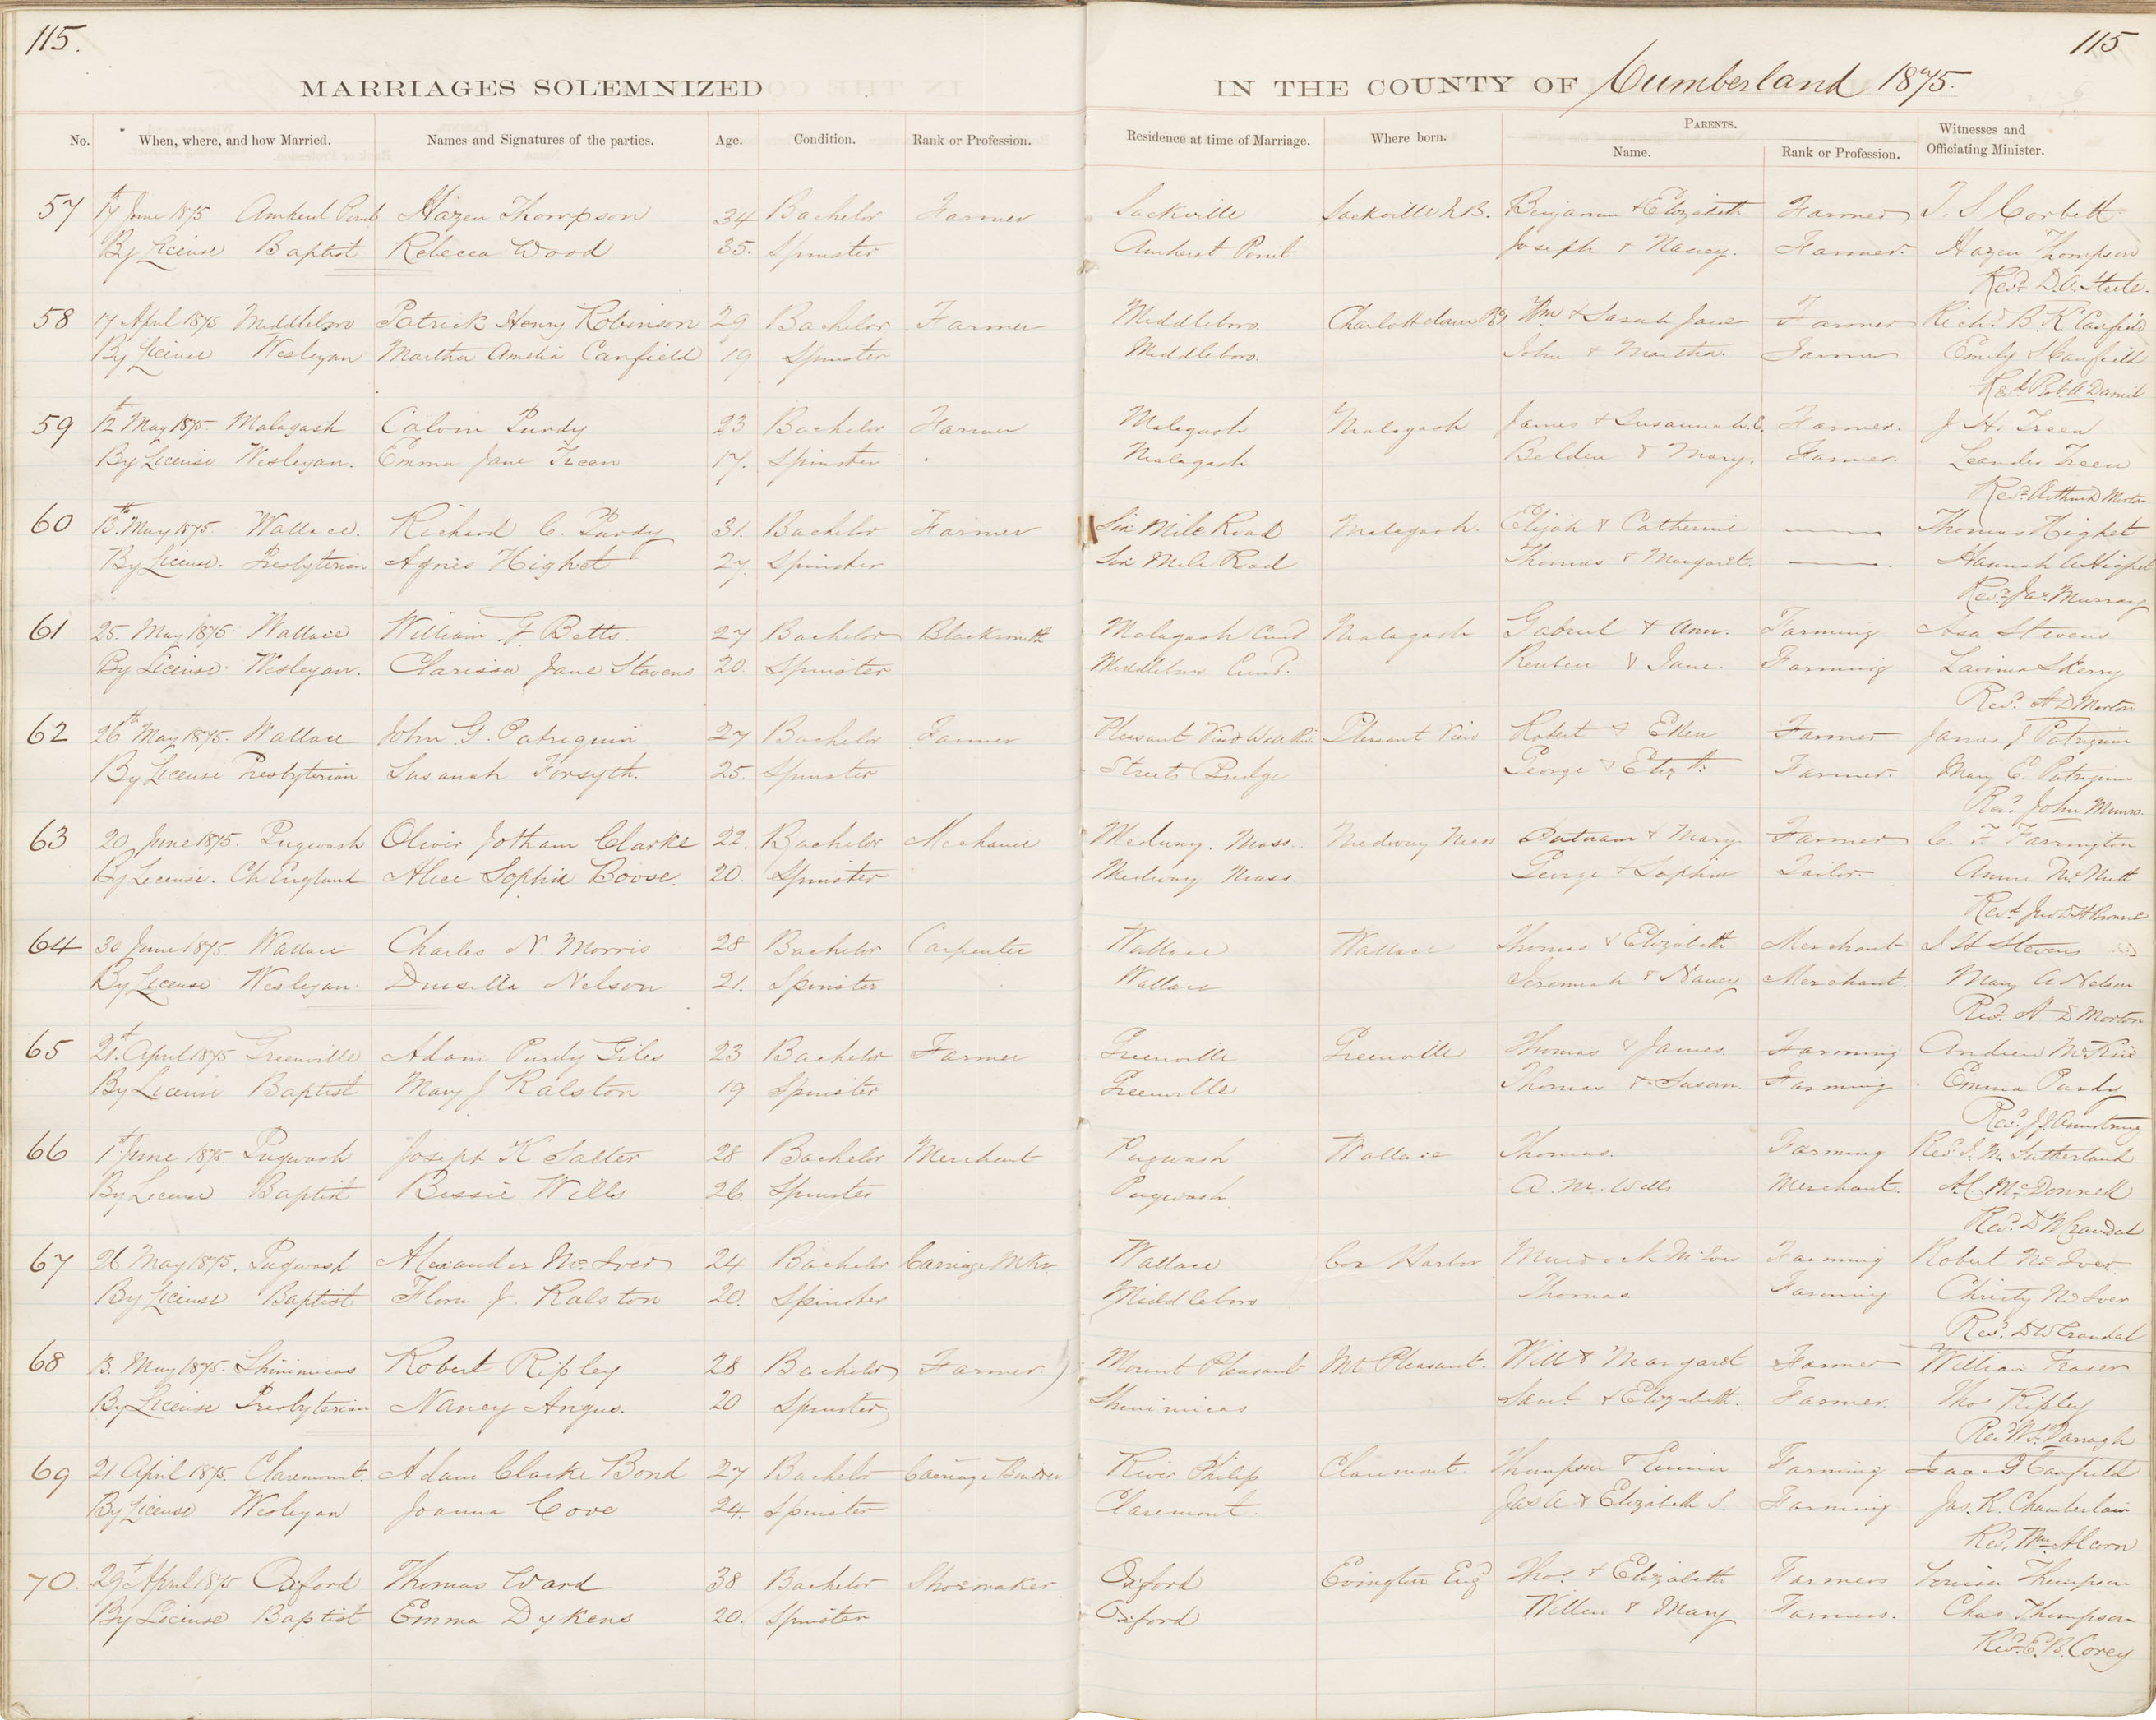 115.
115
MARRIAGES SOLEMNIZED IN THE COUNTY OF Cumberland 1875.
No. When, where, and how Married. Names and Signatures of the parties. Age. Condition. Rank or Profession. Residence at time of Marriage. Where born. PARENTS. Name. Rank or Profession. Witnesses and Officiating Minister.
57 17th June 1875 Amherst Point Hazen Thompson 34 Bachelor Farmer Sackville Sackville N.B. Benjamin & Elizabeth Farmer T. S. Corbett
By License Baptist Rebecca Wood 35. Spinster Amherst Point Joseph & Nancy. Farmer. Hazen Thompson
Revd. D. A. Steele.
58 17 April 1875 Middleboro Patrick Henry Robinson 29 Bachelor Farmer Middleboro. Charlottetown Wm & Sarah Jane Farmer Richd. B. K. Canfield
By License Wesleyan Martha Amelia Canfield 19 Spinster Middleboro. John & Martha. Farmer Emily S Canfield
Revd. Robt. A. Daniel
59 12th May 1875 Malagash Calvin Purdy 23 Bachelor Farmer Malagash Malagash James & Susannah E. Farmer. J. H. Treen
By License Wesleyan. Emma Jane Treen 17. Spinster Malagash Belden & Mary. Farmer. Leander Treen
Revd. Arthur D Morton
60 13th May 1875. Wallace. Richard C. Purdy 31. Bachelor Farmer Six Mile Road Malagash. Elijah & Catherine — Thomas Highet
By License. Presbyterian Agnes Highet 27. Spinster Six Mile Road Thomas & Margaret. — Hannah A Highet
Revd. Jas. Murray
61 25. May 1875 Wallace William F Betts. 27 Bachelor Blacksmith Malagash Cumd Malagash Gabriel & Ann. Farming Asa Stevens
By License. Wesleyan. Clarissa Jane Stevens 20. Spinster Middleboro Cumd. Reuben & Jane. Farming Lavinia Skerry
Revd. A D Morton
62 26th May 1875. Wallace John G. Patriquin 27 Bachelor Farmer Pleasant View Pleasant View Robert & Ellen Farmer James J Patriquin
By License Presbyterian Susanah Forsyth. 25. Spinster Streets Bridge George & Elizth. Farmer. Mary E. Patriquin
Revd. John Munro.
63 20 June 1875. Pugwash Oliver Jotham Clarke 22. Bachelor Mechanic Medway. Mass. Medway Mass Putnam & Mary. Farmer C. F Farrington
By License. Ch England Alice Sophia Boove. 20. Spinster Medway Mass. George & Sophia Tailor. Annie McNutt
Revd.
64 30 June 1875. Wallace Charles N. Morris 28 Bachelor Carpenter Wallace Wallace Thomas & Elizabeth Merchant J H Stevens
By License Wesleyan Drusilla Nelson 21. Spinster Wallace Jeremiah & Nancy Merchant. Mary A Nelson
Revd. A. D Morton
65 21st. April 1875 Greenville Adam Purdy Giles 23 Bachelor Farmer Greenville Greenville Thomas & James. Farming Andrew McKim
By License Baptist Mary J Ralston 19 Spinster Greenville Thomas & Susan. Farming Emma Purdy
Revd. J. J. Armstrong
66 1st June 1875. Pugwash Joseph K Salter 28 Bachelor Merchant Pugwash Wallace Thomas. Farming Revd. J. M. Sutherland
By License Baptist Bessie Wells 26. Spinster Pugwash A. M. Wells Merchant. A. C. McDonnell
Revd. D W Crandal
67 26 May 1875. Pugwash Alexander McIver 24 Bachelor Carriage Mkr Wallace Cox Harbor Murdock McIver Farming Robert McIver.
By License Baptist Flora J. Ralston 20. Spinster Middleboro Thomas. Farming Christy McIver
Revd. D W Crandal
68 13. May 1875. Shinimicas Robert Ripley 28 Bachelor Farmer Mount Pleasant Mt Pleasant. Will & Margaret Farmer William Fraser
By License Presbyterian Nancy Angus. 20 Spinster Shinimicas Saml. & Elizabeth. Farmer. Thos Ripley
Revd W. S. Darragh
69 21. April 1875. Claremont. Adam Clarke Bond 27 Bachelor Carriage Builder River Philip Claremont. Thompson & Eunice Farming Isaac G Canfield
By License Wesleyan Joanna Cove 24. Spinster Claremont. Jas A & Elizabeth S. Farming Jas. R. Chamberlain
Revd. Wm Alcorn
70. 29th April 1875 Oxford Thomas Ward 38 Bachelor Shoemaker Oxford Evington Eng Thos. & Elizabeth Farmers Louisa Thompson
By License Baptist Emma Dykens 20. Spinster Oxford Willm. & Mary Farmers. Chas Thompson
Revd. E. B. Corey